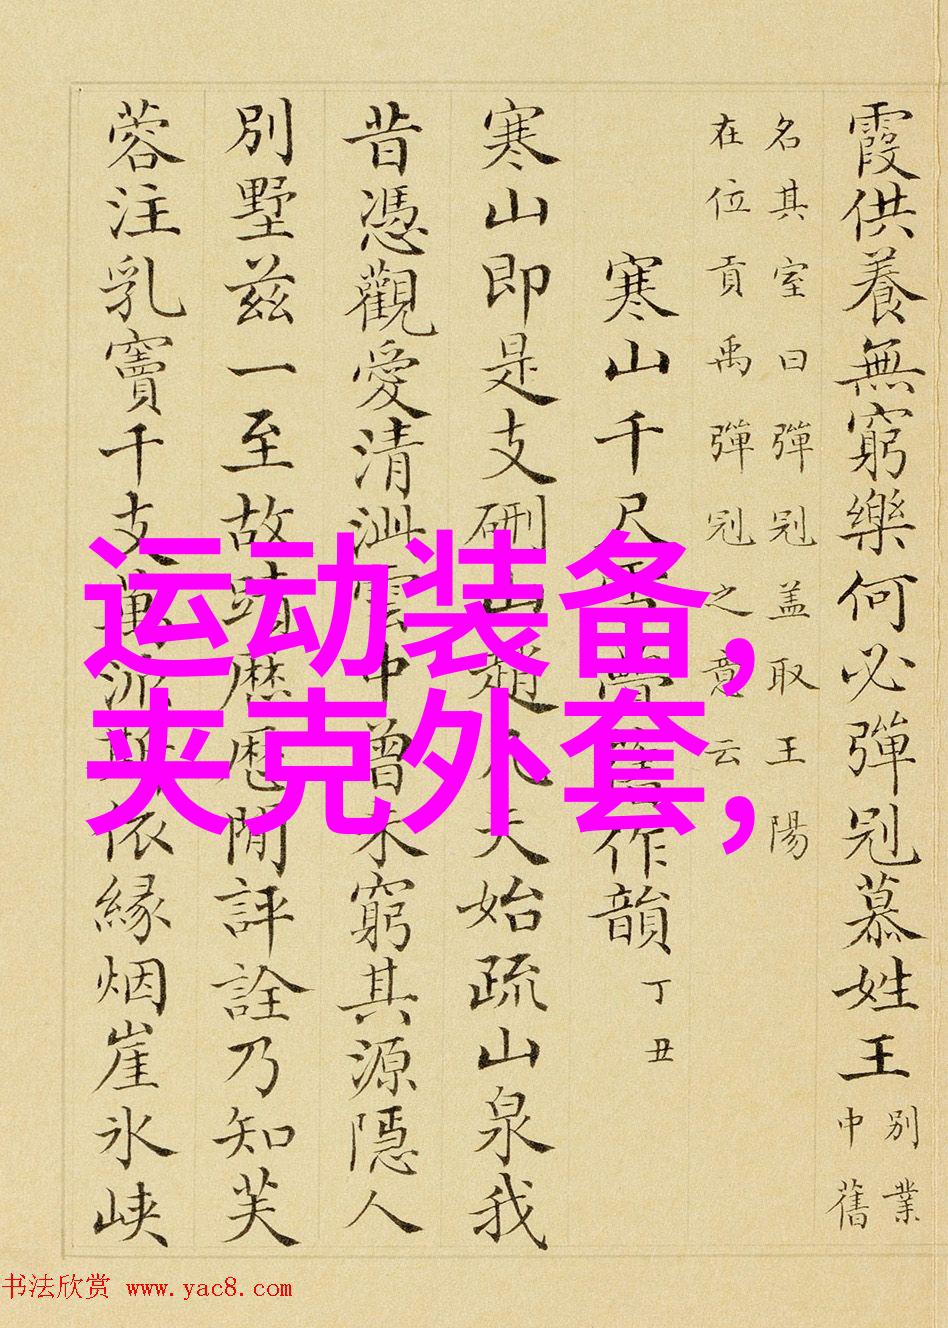 霞供養無窮樂何必彈冠慕姓王
別業
中舊
名其室曰彈冠盖取王陽
在位貢禹彈冠之意云
寒山千尺作韻 丁丑
寒山即是支硎山趙凡夫始疏山泉我
昔憑觀愛清泚雲中曾未窮其源隱人
別墅茲一至故蹟歷歷閒評詮乃知芙
蓉注乳竇千支萬派斯依緣烟崖氷峽
运动装备,
夹克外套,
书法欣赏 www.yac8.com